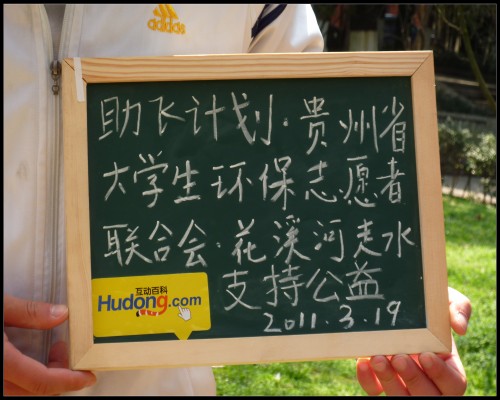 adidas
助飞计划·贵州省
大学生环保志愿者
联合会·花溪河走水
支持公益
2011.3.19
互动百科
Hudong.com